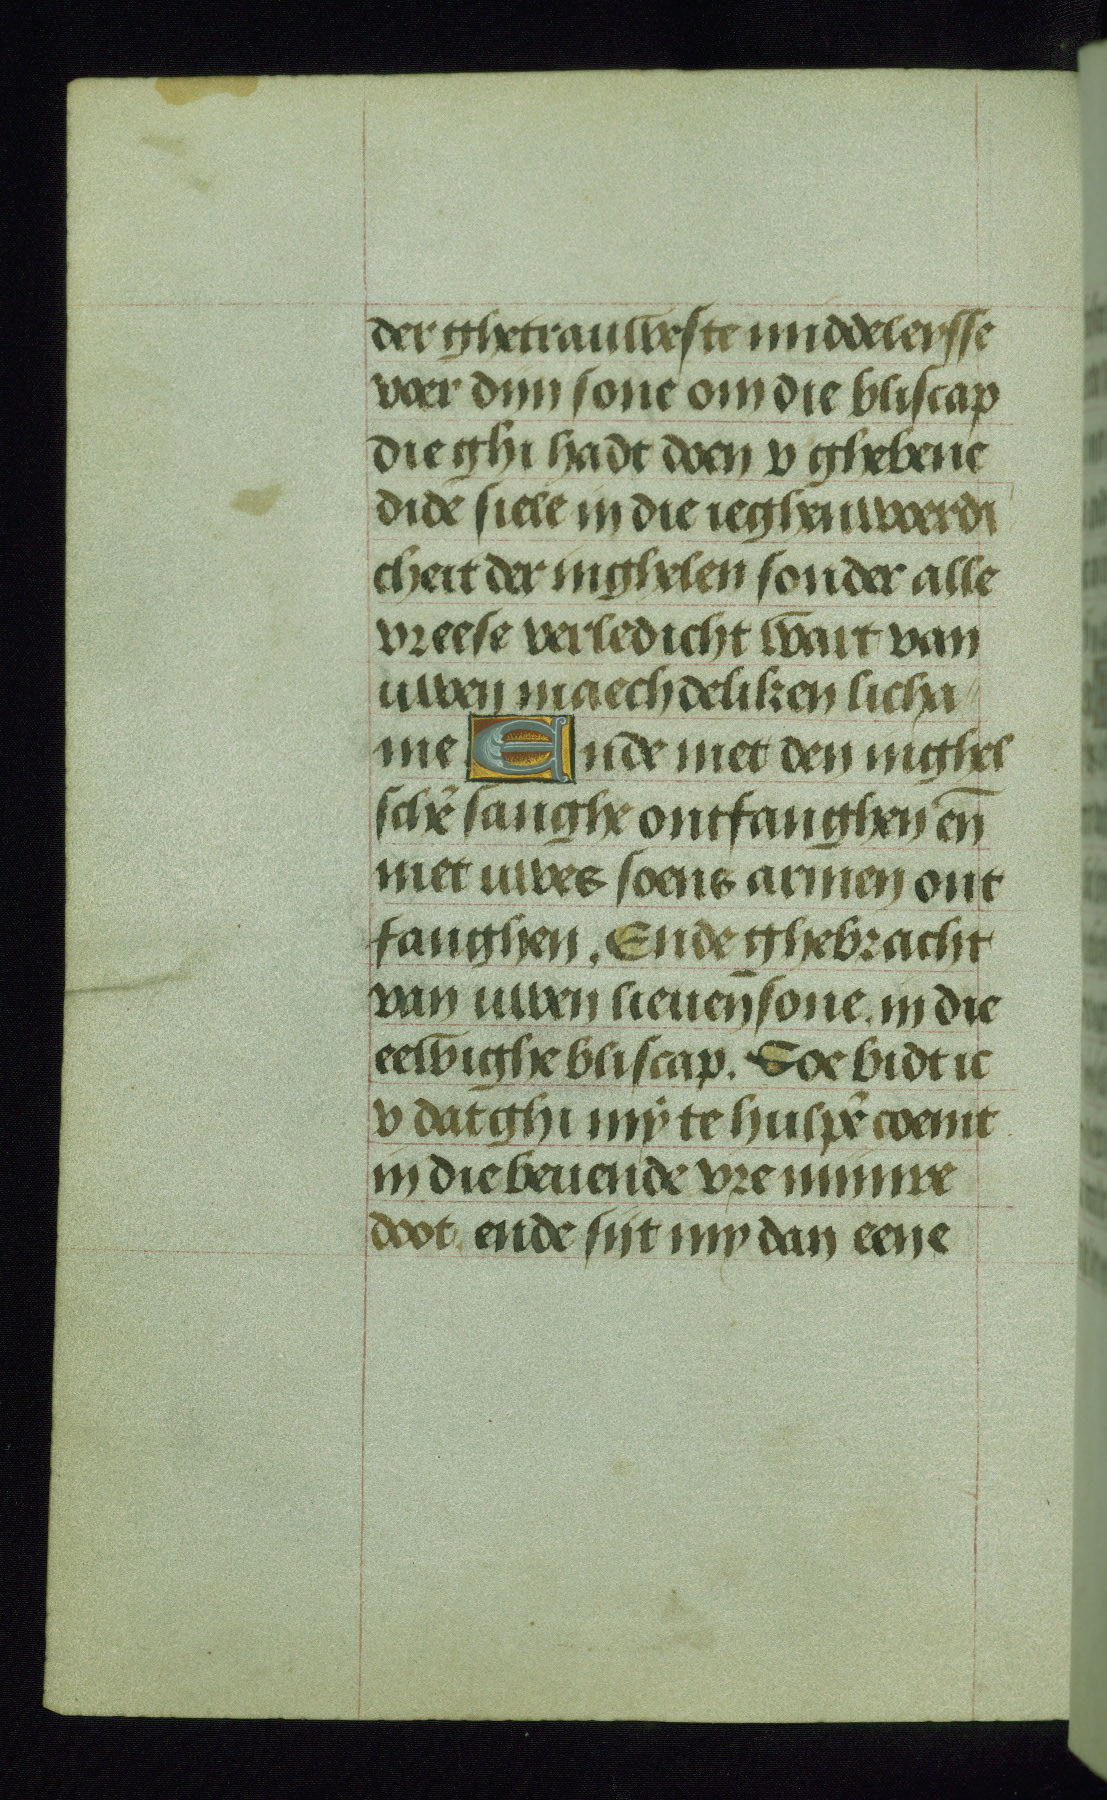 der ghetrauweste middelersse
voer dijn sone om die bliscap
die ghi hadt doen v ghebene
dide siele in die ieghenwoerdi
cheit der inghelen sonder alle
vreese verledicht wart van
uwen maechdeliken licha
me Ende met den inghel
schẽ sanghe ontfanghen en̄
met uwes soens armen ont
fanghen. Ende ghebracht
van uwen lieuen sone. in die
eewighe bliscap. Soe bidt ic
v dat ghi mÿ te hulpẽ coemt
in die beuende vre mijnre
doot. ende sijt my dan eene